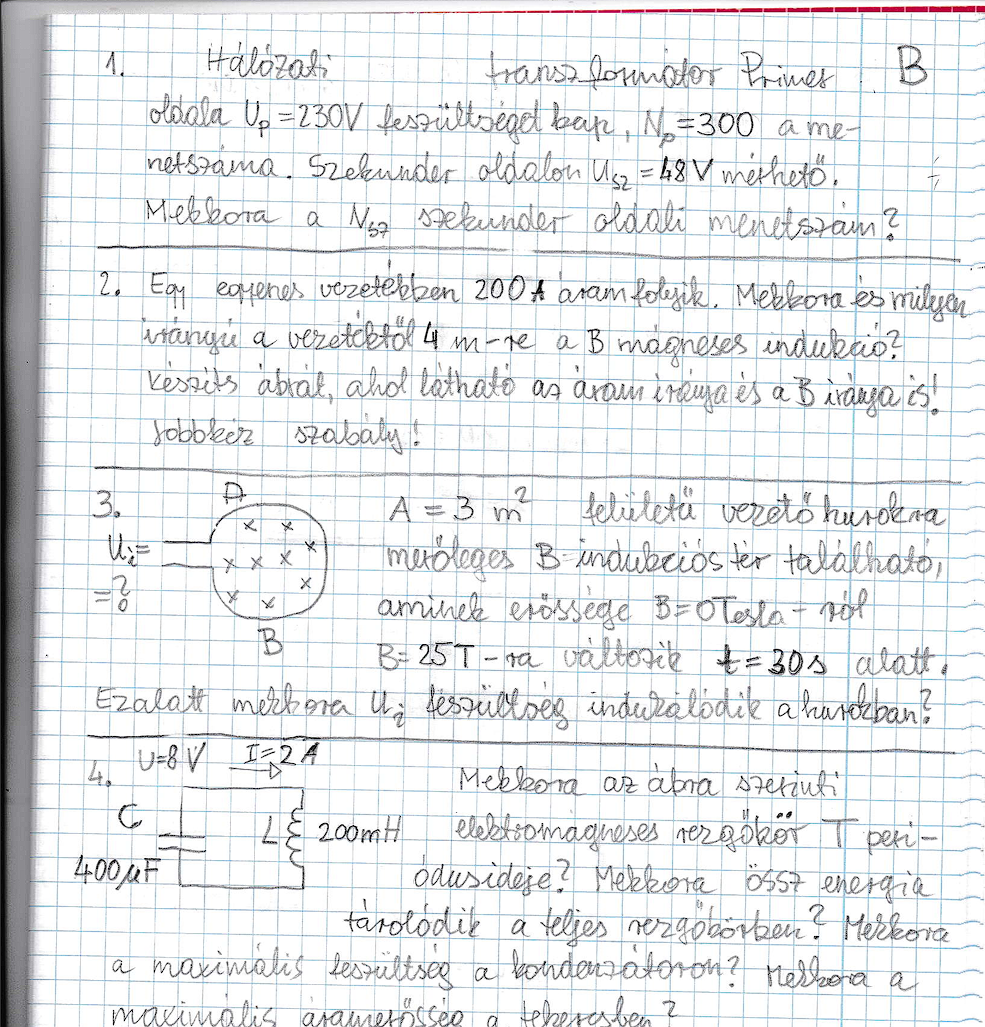 1. Hálózati transzformátor Primer B
oldala Up = 230V feszültséget kap, Np = 300 a me-
netszáma. Szekunder oldalon Usz = 48 V mérhető.
Mekkora a Nsz szekunder oldali menetszám?
2. Egy egyenes vezetékben 200 A áram folyik. Mekkora és milyen
irányú a vezetéktől 4 m-re a B mágneses indukció?
Készíts ábrát, ahol látható az áram iránya és a B iránya is!
Jobbkéz szabály!
3. A A = 3 m² felületű vezető hurokra
Ui = merőleges B indukciós tér található,
= ? aminek erőssége B = 0 Tesla-ról
B B = 25T-ra változik t = 30s alatt.
Ezalatt mekkora Ui feszültség indukálódik a hurokban?
U=8 V I=2 A
4. Mekkora az ábra szerinti
C L 200mH elektromágneses rezgőkör T peri-
400μF ódusideje? Mekkora össz energia
tárolódik a teljes rezgőkörben? Mekkora
a maximális feszültség a kondenzátoron? Mekkora a
maximális áramerősség a tekercsben?